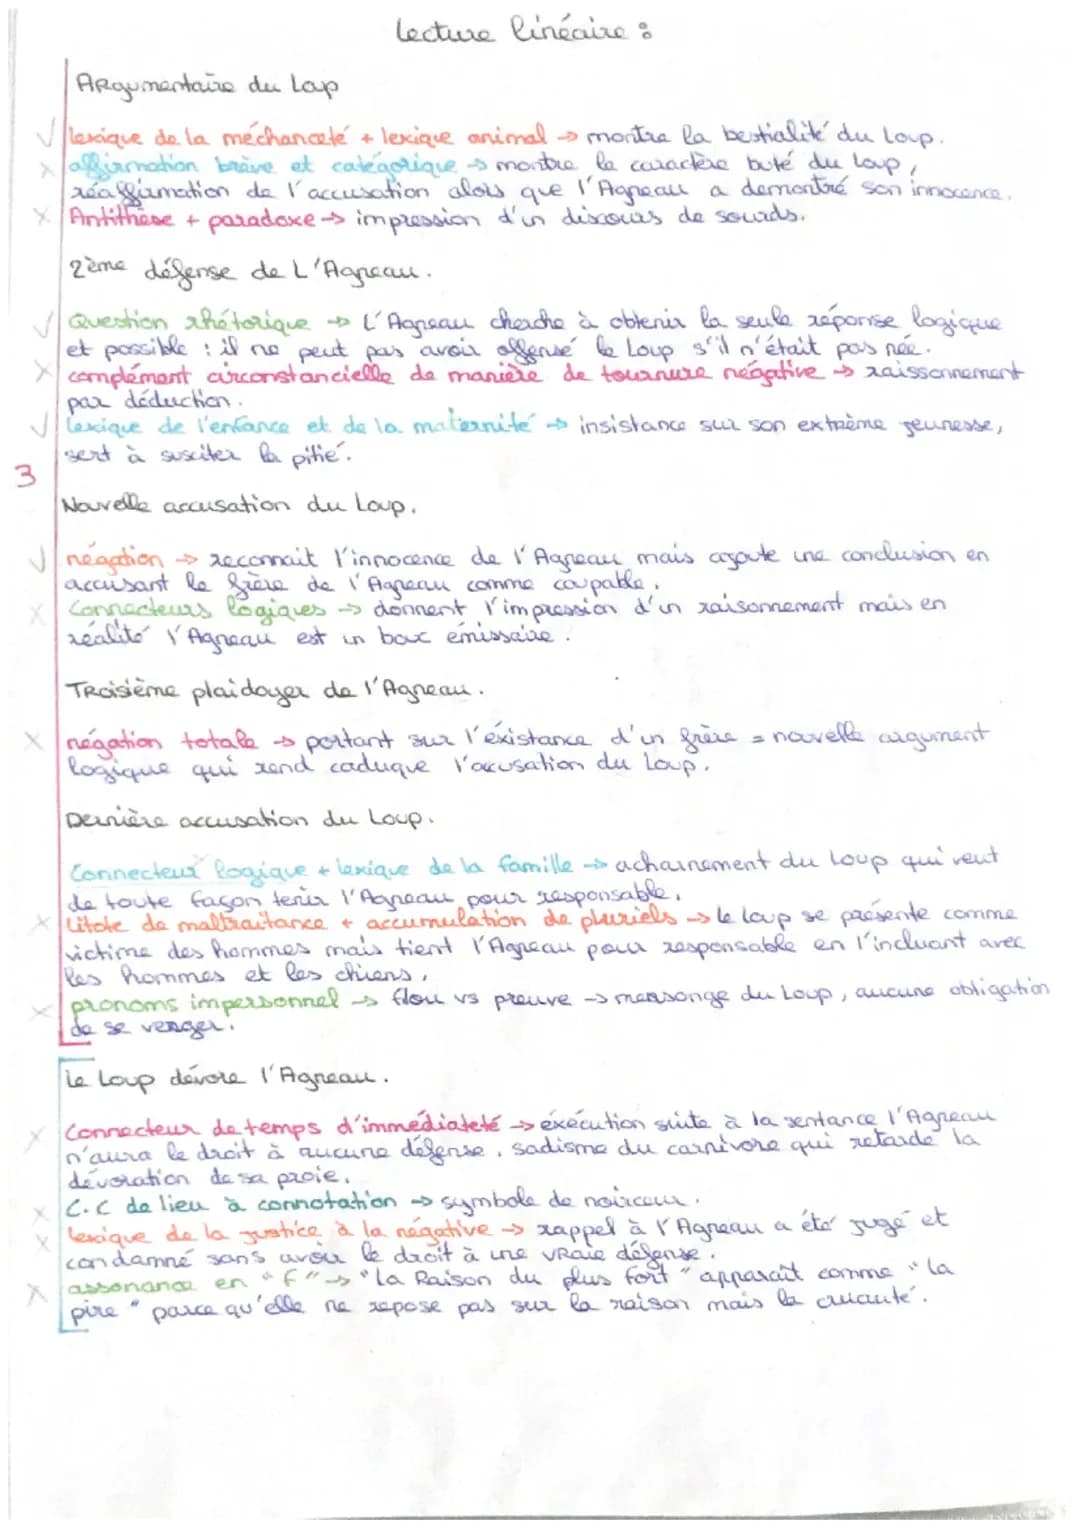 Lecture linéaire :
Argumentaire du Loup
✓ lexique de la méchanceté + lexique animal → montre la bestialité du Loup.
x affirmation brève et catégorique → montre le caractère buté du Loup,
réaffirmation de l'accusation alors que l'Agneau a demontré son innocence.
x Antithèse + paradoxe → impression d'un discours de sourds.
2ème défense de L'Agneau.
✓ Question rhétorique → L'Agneau cherche à obtenir la seule réponse logique
et possible : il ne peut pas avoir offensé le Loup s'il n'était pas née.
x complément circonstancielle de manière de tournure négative → raisonnement
par déduction.
✓ lexique de l'enfance et de la maternité → insistance sur son extrème jeunesse,
sert à susciter la pitié.
3
Nouvelle accusation du Loup.
✓ négation → reconnait l'innocence de l'Agneau mais ajoute une conclusion en
accusant le frère de l'Agneau comme coupable.
x Connecteurs logiques → donnent l'impression d'un raisonnement mais en
réalité l'Agneau est un bouc émissaire.
Troisième plaidoyer de l'Agneau.
x négation totale → portant sur l'éxistance d'un frère = nouvelle argument
logique qui rend caduque l'accusation du Loup.
Dernière accusation du Loup.
Connecteur logique + lexique de la famille → acharnement du Loup qui veut
de toute façon tenir l'Agneau pour responsable.
x Litote de maltraitance + accumulation de pluriels → le Loup se présente comme
victime des hommes mais tient l'Agneau pour responsable en l'incluant avec
les hommes et les chiens.
x pronoms impersonnel → flou vs preuve → mensonge du Loup, aucune obligation
de se venger.
Le Loup dévore l'Agneau.
x Connecteur de temps d'immédiateté → éxécution suite à la sentance l'Agneau
n'aura le droit à aucune défense. sadisme du carnivore qui retarde la
dévoration de sa proie.
x C.C de lieu à connotation → symbole de noirceur.
x lexique de la justice à la négative → rappel à l'Agneau a été jugé et
condamné sans avoir le droit à une vraie défense.
x assonance en "f" → "La Raison du plus fort" apparaît comme "la
pire" parce qu'elle ne repose pas sur la raison mais la cruauté.